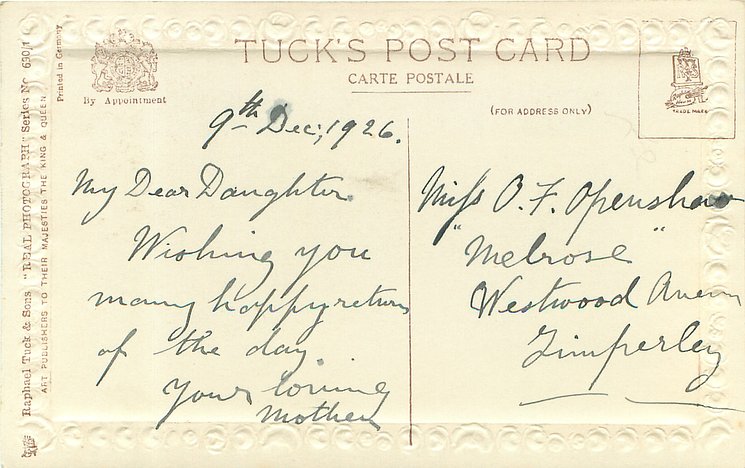 TUCK'S POST CARD
CARTE POSTALE
By Appointment
(FOR ADDRESS ONLY)
TRADE MARK
Printed in Germany
Raphael Tuck & Sons "REAL PHOTOGRAPH" Series No 690/1
ART PUBLISHERS TO THEIR MAJESTIES THE KING & QUEEN
9th Dec; 1926.
My Dear Daughter.
Wishing you
many happy returns
of the day.
Your loving
Mother
Miss O. F. Openshaw
"Melrose"
Westwood Avenu
Timperley